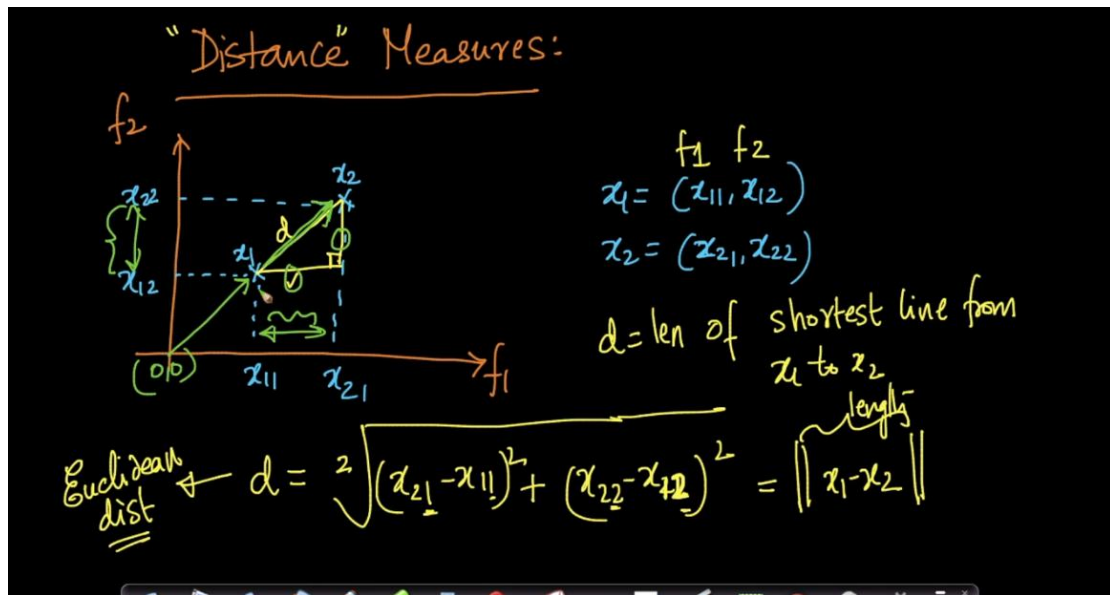 "Distance" Measures:
f2
x22
x12
x2
d
x1
(0,0)
x11
x21
f1
f1 f2
x1 = (x11, x12)
x2 = (x21, x22)
d = len of shortest line from
x1 to x2
length
Euclidean dist ← d = ²√(x21 - x11)² + (x22 - x12)² = ||x1 - x2||